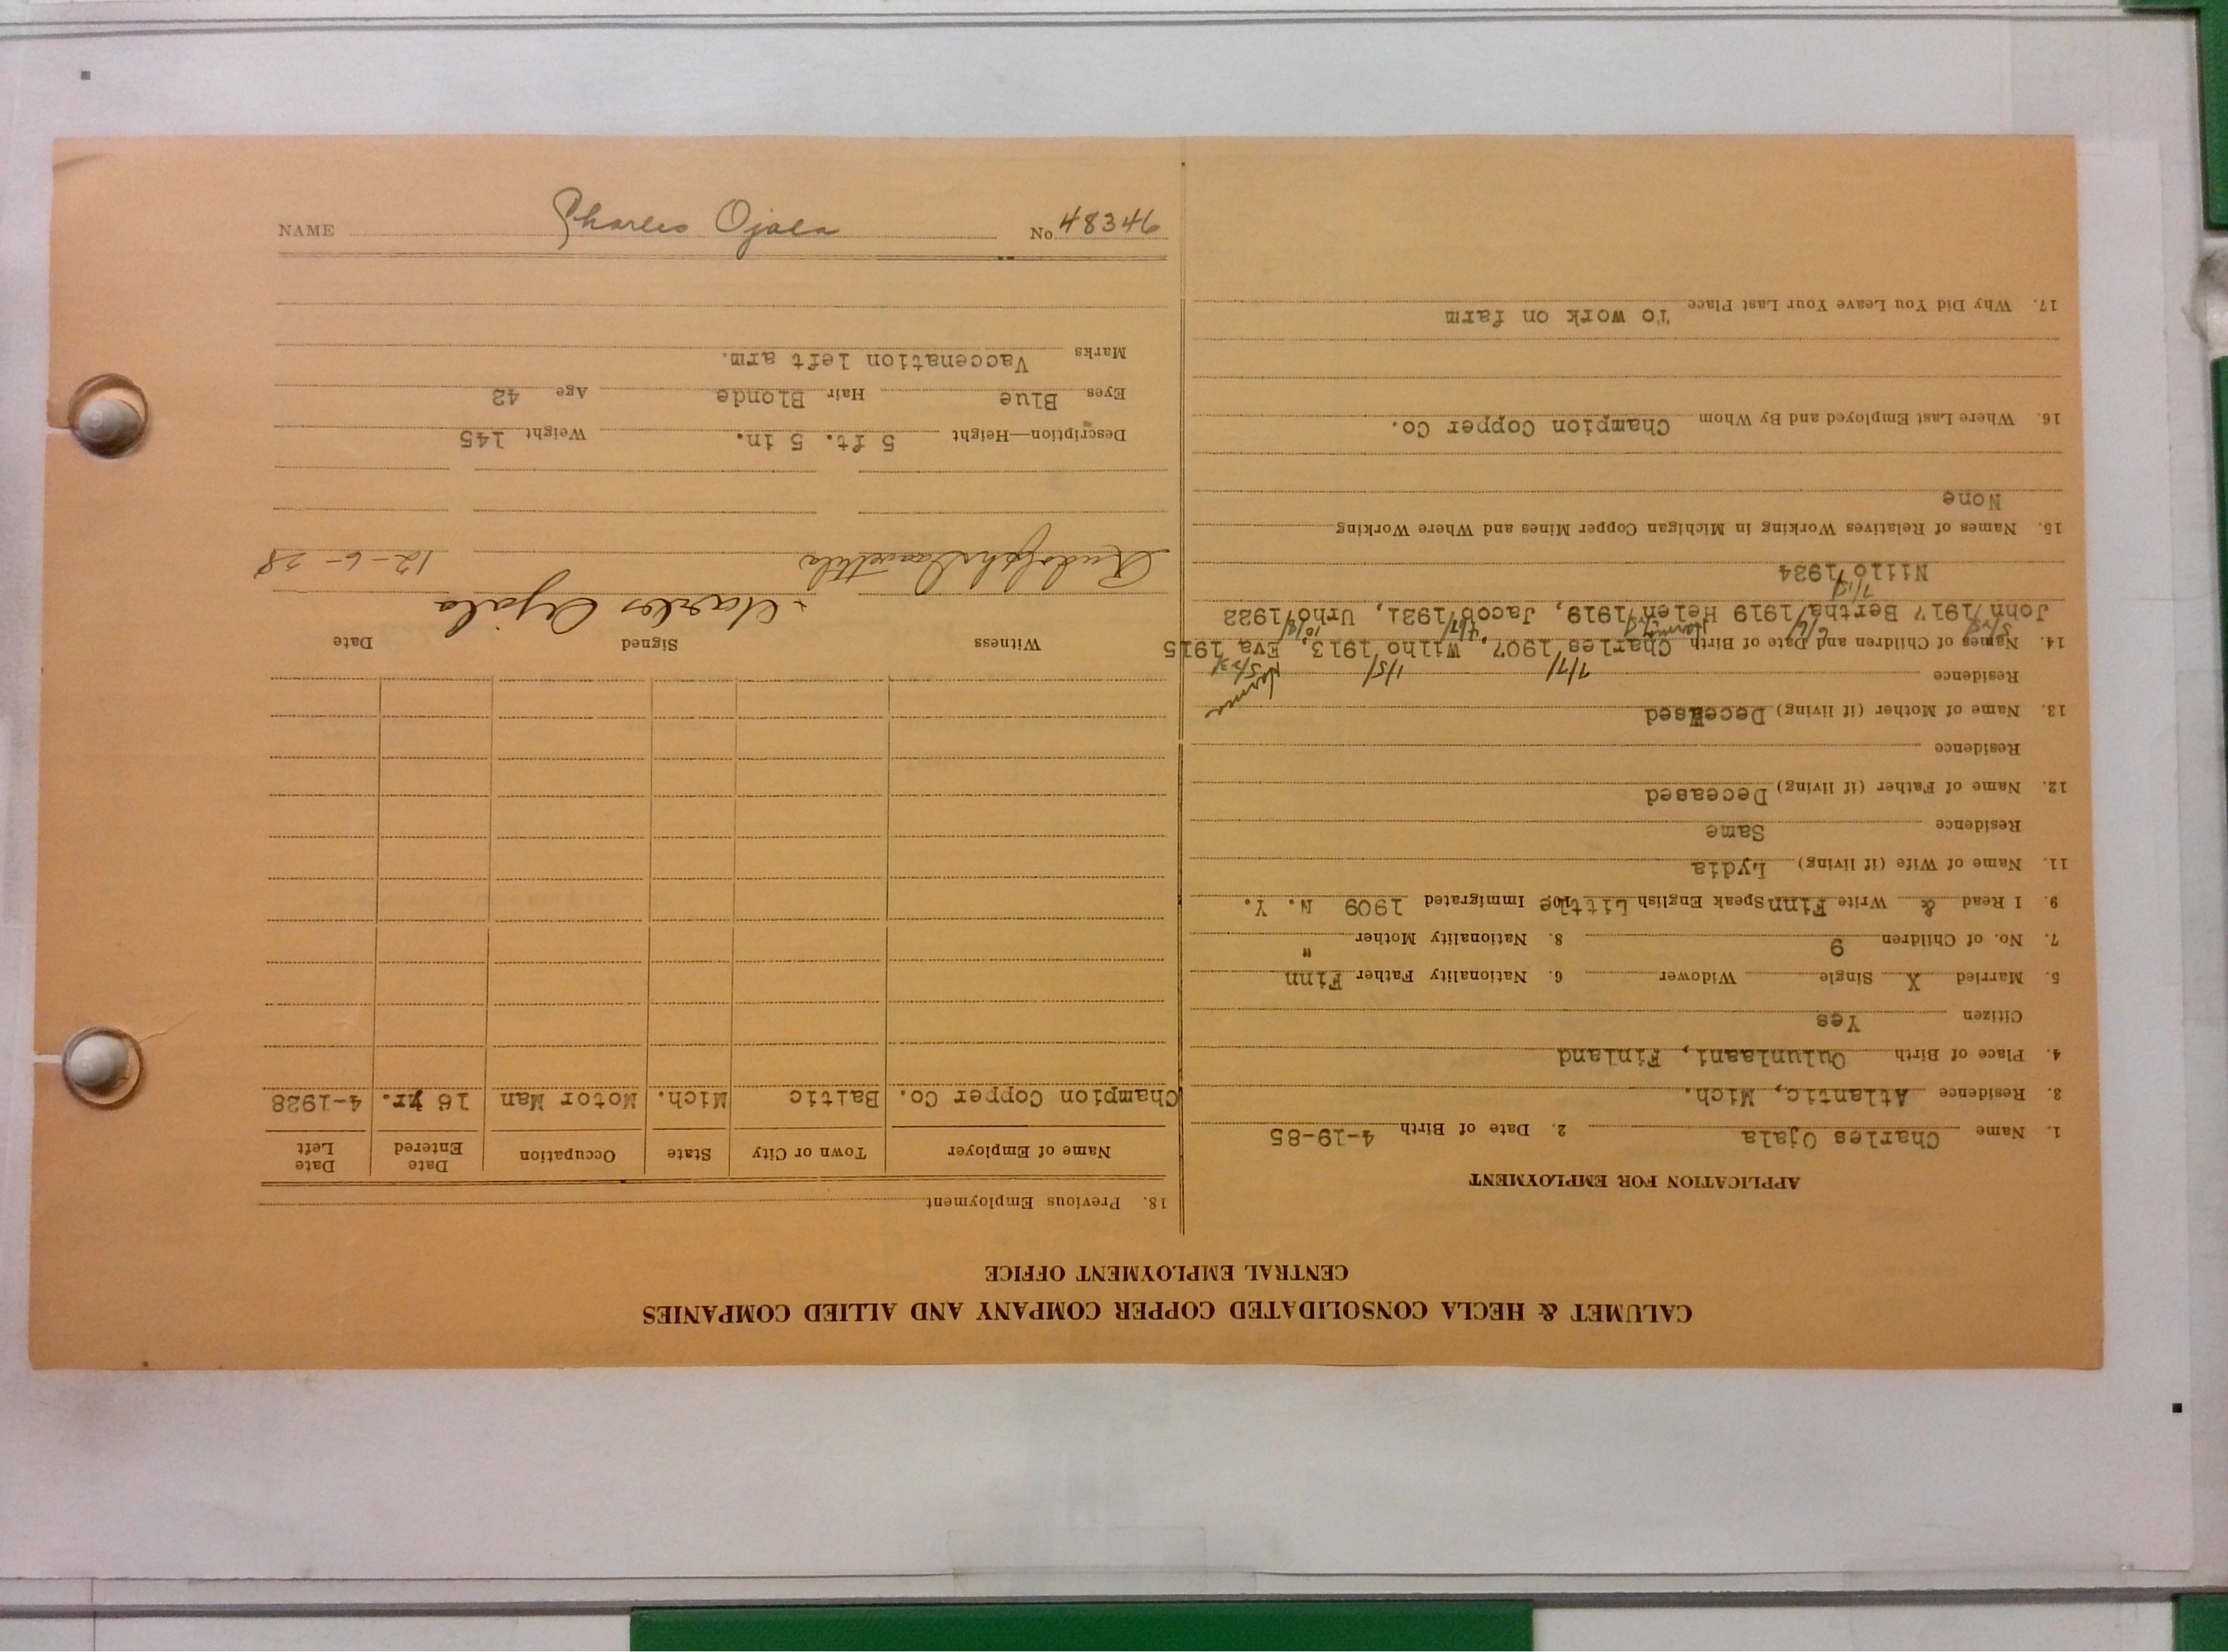 NAME Charles Ojala No. 48346
CALUMET & HECLA CONSOLIDATED COPPER COMPANY AND ALLIED COMPANIES
CENTRAL EMPLOYMENT OFFICE
APPLICATION FOR EMPLOYMENT
1. Name Charles Ojala 2. Date of Birth 4-19-85
3. Residence Atlantic, Mich.
4. Place of Birth Oulunlaani, Finland
Citizen Yes
5. Married X Single Widower 6. Nationality Father Finn
7. No. of Children 9 8. Nationality Mother "
9. I Read & Write Finn Speak English Little 10. Immigrated 1909 N. Y.
11. Name of Wife (if living) Lydia
Residence Same
12. Name of Father (if living) Deceased
Residence
13. Name of Mother (if living) Deceased
Residence
7/7/ 1/5/ 5/23/
14. Names of Children and Date of Birth Charles 1907, Wilho 1913, Eva 1915
John 1917 Bertha 1919 Helen 1919, Jacob 1921, Urho 1922
Niilo 1924
15. Names of Relatives Working in Michigan Copper Mines and Where Working
None
16. Where Last Employed and By Whom Champion Copper Co.
17. Why Did You Leave Your Last Place To work on farm
18. Previous Employment
Name of Employer Town or City State Occupation Date Entered Date Left
Champion Copper Co. Baltic Mich. Motor Man 16 yr. 4-1928
Witness Signed Date
x Charles Ojala
Rudolph 12-6-28
Description—Height 5 ft. 5 in. Weight 145
Eyes Blue Hair Blonde Age 42
Marks Vaccenation left arm.